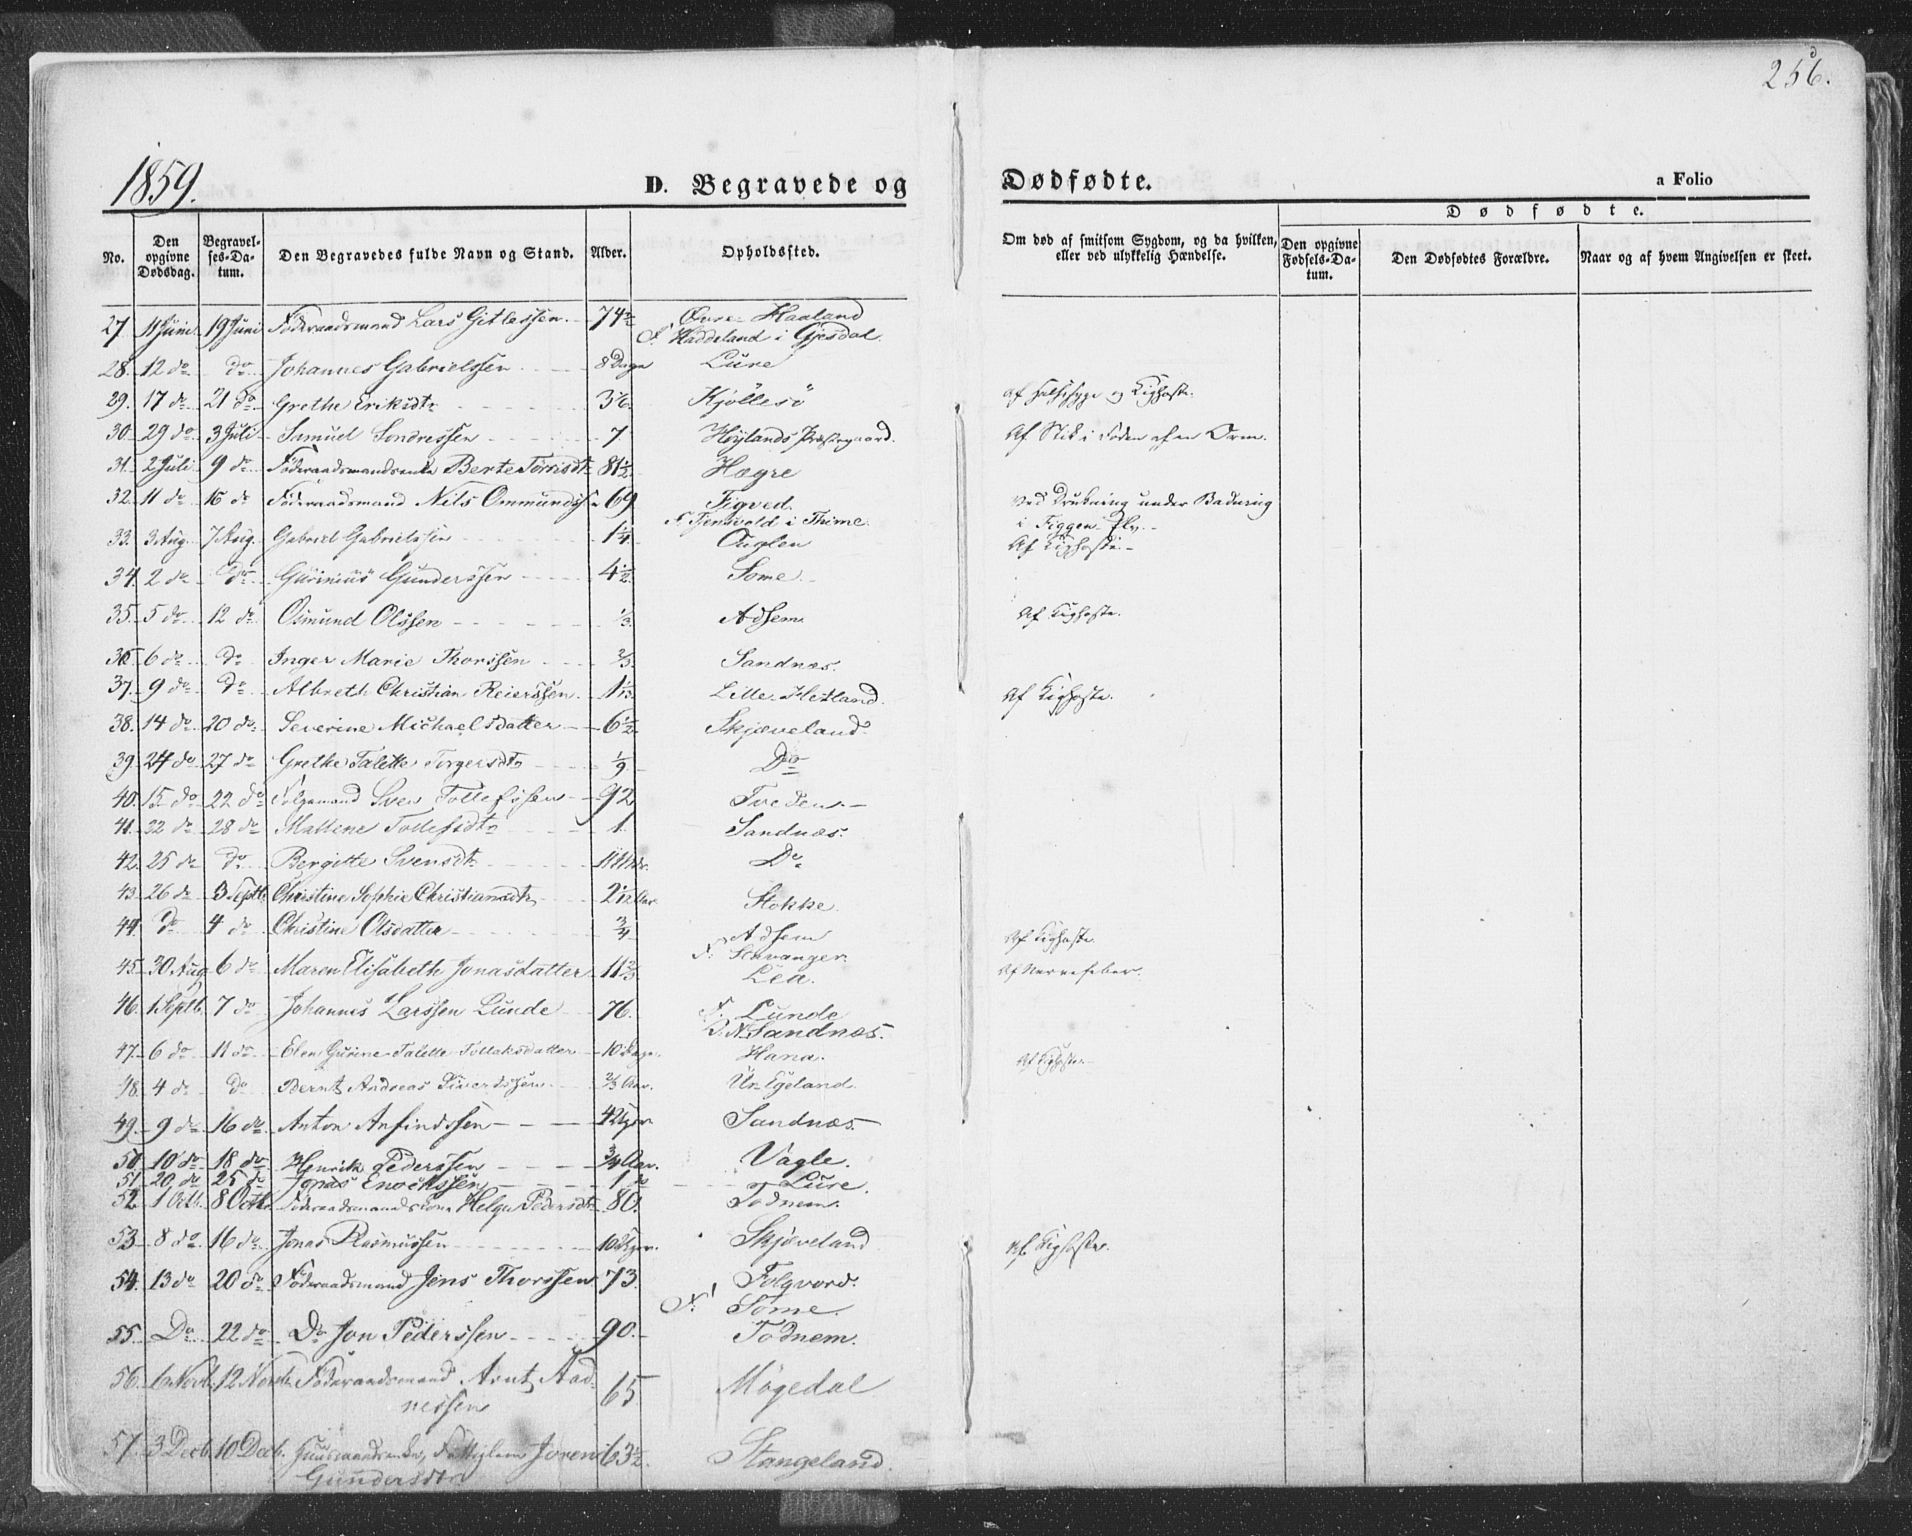 256.
1859.
D. Begravede og Dødfødte.
a Folio
No.
Den opgivne Dødsdag.
Begravelses-Datum.
Den Begravedes fulde Navn og Stand.
Alder.
Opholdssted.
Om død af smitsom Sygdom, og da hvilken, eller ved ulykkelig Hændelse.
Dødfødte.
Den opgivne Fødsels-Datum.
Den Dødfødtes Forældre.
Naar og af hvem Angivelsen er skeet.
27. 11 Juni 19 Juni Föderaadsmand Lars Gitlessen 74½ Øvre-Haaland
F. Haddeland i Gjesdal.
28. 12 do do Johannes Gabrielssen 8 Dage Lure
29. 17 do 21 do Grethe Eriksdtr 3 Kjöllesö Af Halssyge og Kighoste.
30. 29 do 3 Juli Samuel Sondressen 7 Høylands Præstegaard. Af Stik i Foden af en Orm.
31. 2 Juli 9 do Föderaadsmandsenke Berte Torrisdtr 81½ Hogre
32. 11 do 16 do Föderaadsmand Nils Ommundssen 69 Figved. Ved Drukning under Badning
F. Tjensvold i Thime. i Figgen Elv.
33. 3 Aug. 7 Aug. Gabriel Gabrielssen 1¼ Ouglen Af Kighoste.
34. 2 do do Gunnius Gunderssen 4½ Some
35. 5 do 12 do Osmund Olssen ⅓ Adsem Af Kighoste.
36. 6 do do Inger Marie Thorssen ⅔ Sandnæs.
37. 9 do do Albreth Christian Reierssen. 1 Lille-Hetland. Af Kighoste.
38. 14 do 20 do Severine Michaelsdatter 6½ Skjæveland
39. 24 do 27 do Grethe Talette Torgersdtr 1/9 Do
40. 15 do 22 do Sven Tollefssen 92 Tveden
41. 22 do 28 do Maltene Tollefsdtr 1 Sandnæs.
42. 25 do do Bergitte Svensdtr 11 Mdr. Do
43. 26 do 3 Septb. Christine Sophie Christiansdtr 2 Aar Stokke
44. do 4 do Christine Olsdatter ¾ Adsem Af Kighoste.
F. Stavanger.
45. 30 Aug 6 do Maren Elisabeth Jonasdatter 11⅔ Lea Af Nervefeber.
46. 1 Septb. 7 do Johannes Larssen Lunde 76. F. Lunde
Sandnæs.
47. 6 do 11 do Elen Gurine Talette Tollaksdatter 10 Dage. Hana. Af Kighoste
48. 4 do do Bernt Andreas Sivertssen ⅔ Aar. Ur-Egeland.
49. 9 do 16 do Anton Anfindssen 4 Uger Sandnæs.
50. 10 do 18 do Henrik Pederssen ¾ Aar. Vagle.
51. 20 do 25 do Jonas Enochssen 1 do Lure.
52. 1 Octb. 8 Octb. Helga Pedersdtr 80. Todnem.
53. 8 do 16 do Jonas Rasmussen 10 Uger. Skjæveland Af Kighoste.
54. 13 do 20 do Föderaadsmand Jens Thorssen 73. Folgvord.
F. Some
55. Do 22 do Do Jon Pederssen 90. Todnem.
56. 6 Novb. 12 Novb. Föderaadsmand Arnt Aad-
nessen 65 Møgedal
57. 3 Decb. 10 Decb. Joren 63½. Stangeland.
Gundersdtr